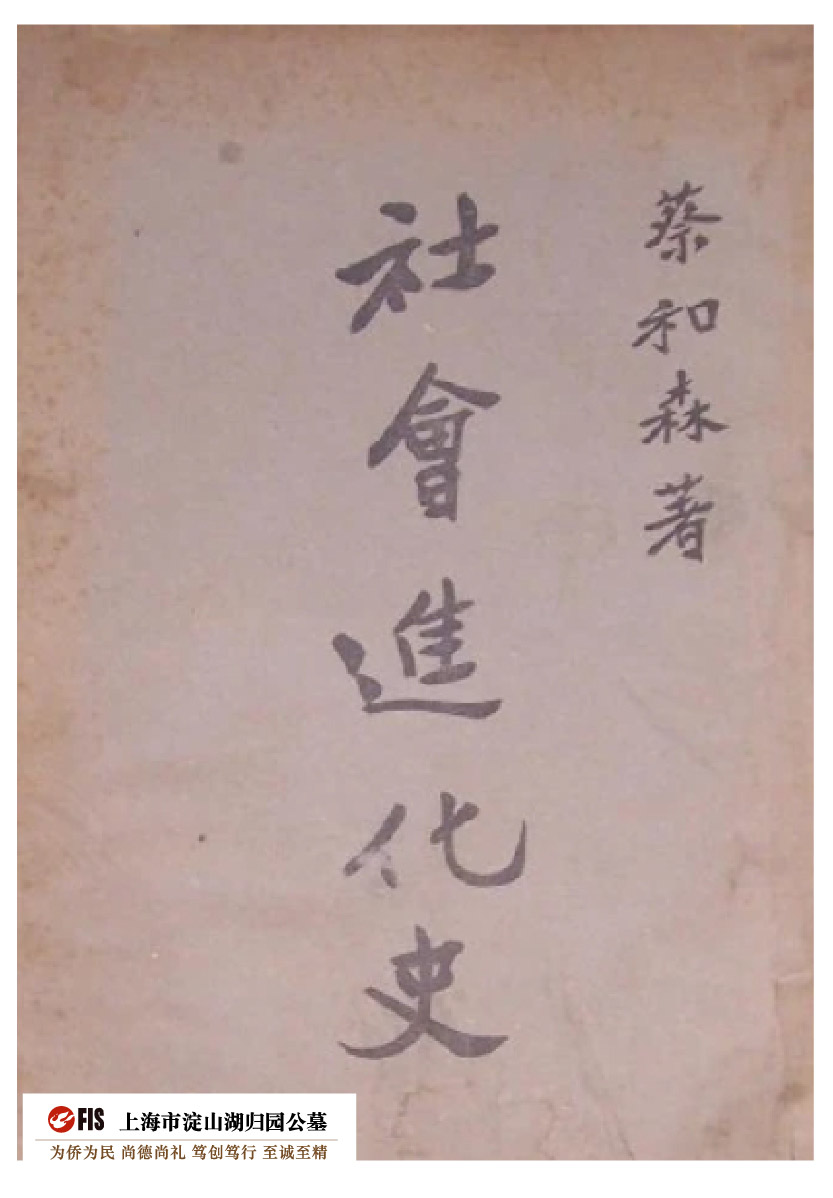 蔡和森著
社會進化史
FIS 上海市淀山湖归园公墓
为侨为民 尚德尚礼 笃创笃行 至诚至精